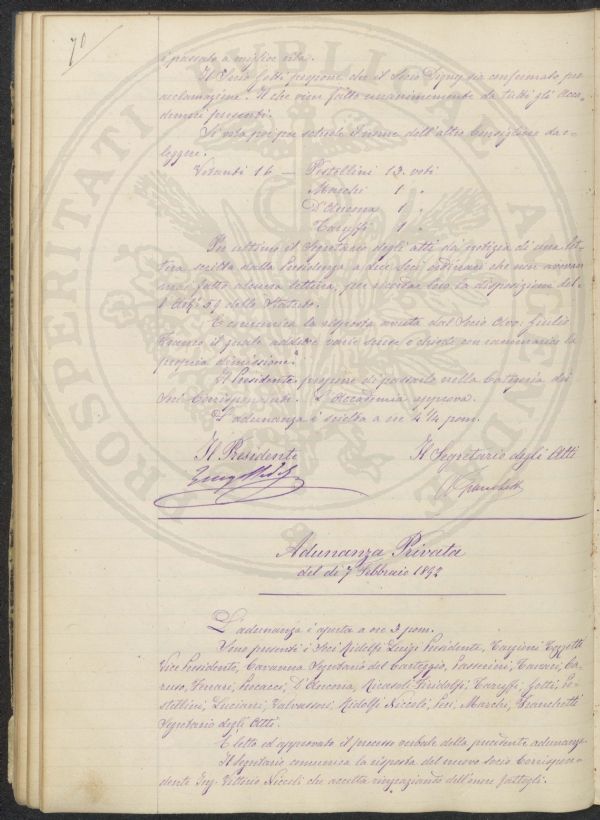 70
è passato a miglior vita.
Il Socio Gotti propone che il Socio Digny sia confermato per
acclamazione. Il che vien fatto unanimemente da tutti gli Acca-
demici presenti.
Si vota poi per schede il nome dell'altro Consigliere da e-
leggere.
Votanti 16 — Pestellini 13 voti
Marchi 1 "
D'Ancona 1 "
Caruffi 1 "
Per ultimo il Segretario degli atti dà notizia di una let-
tera scritta dalla Presidenza a dieci Soci ordinari che non avevano
mai fatto alcuna lettura, per ricordar loro la disposizione del-
l'Art° 54 dello Statuto.
E comunica la risposta avuta dal Socio Avv. Giulio
il quale addice varie scuse e chiede con rammarico la
propria dimissione.
Il Presidente propone di passarlo nella Categoria dei
Soci Corrispondenti. L'Accademia approva.
L'adunanza è sciolta a ore 4 1/4 pom.
Il Presidente Il Segretario degli Atti
Franchetti
Adunanza Privata
del dì 7 Febbraio 1892
L'adunanza è aperta a ore 3 pom.
Sono presenti i Soci Ridolfi Luigi Presidente, Targioni Tozzetti
Vice Presidente, Cavanna Segretario del Carteggio, Passerini, Tanari, Ca-
ruso, Ferrari, D'Ancona, Ricasoli Firidolfi, Caruffi, Gotti, Pe-
stellini, Luciani, Valvassori, Ridolfi Niccolò, Marchi, Franchetti
Segretario degli Atti.
È letto ed approvato il processo verbale della precedente adunanza.
Il Segretario comunica la risposta del nuovo socio Corrispon-
dente Ing. Vittorio Niccoli che accetta ringraziando dell'onore fattogli.
PROSPERITATI PUBLICAE AUGENDAE